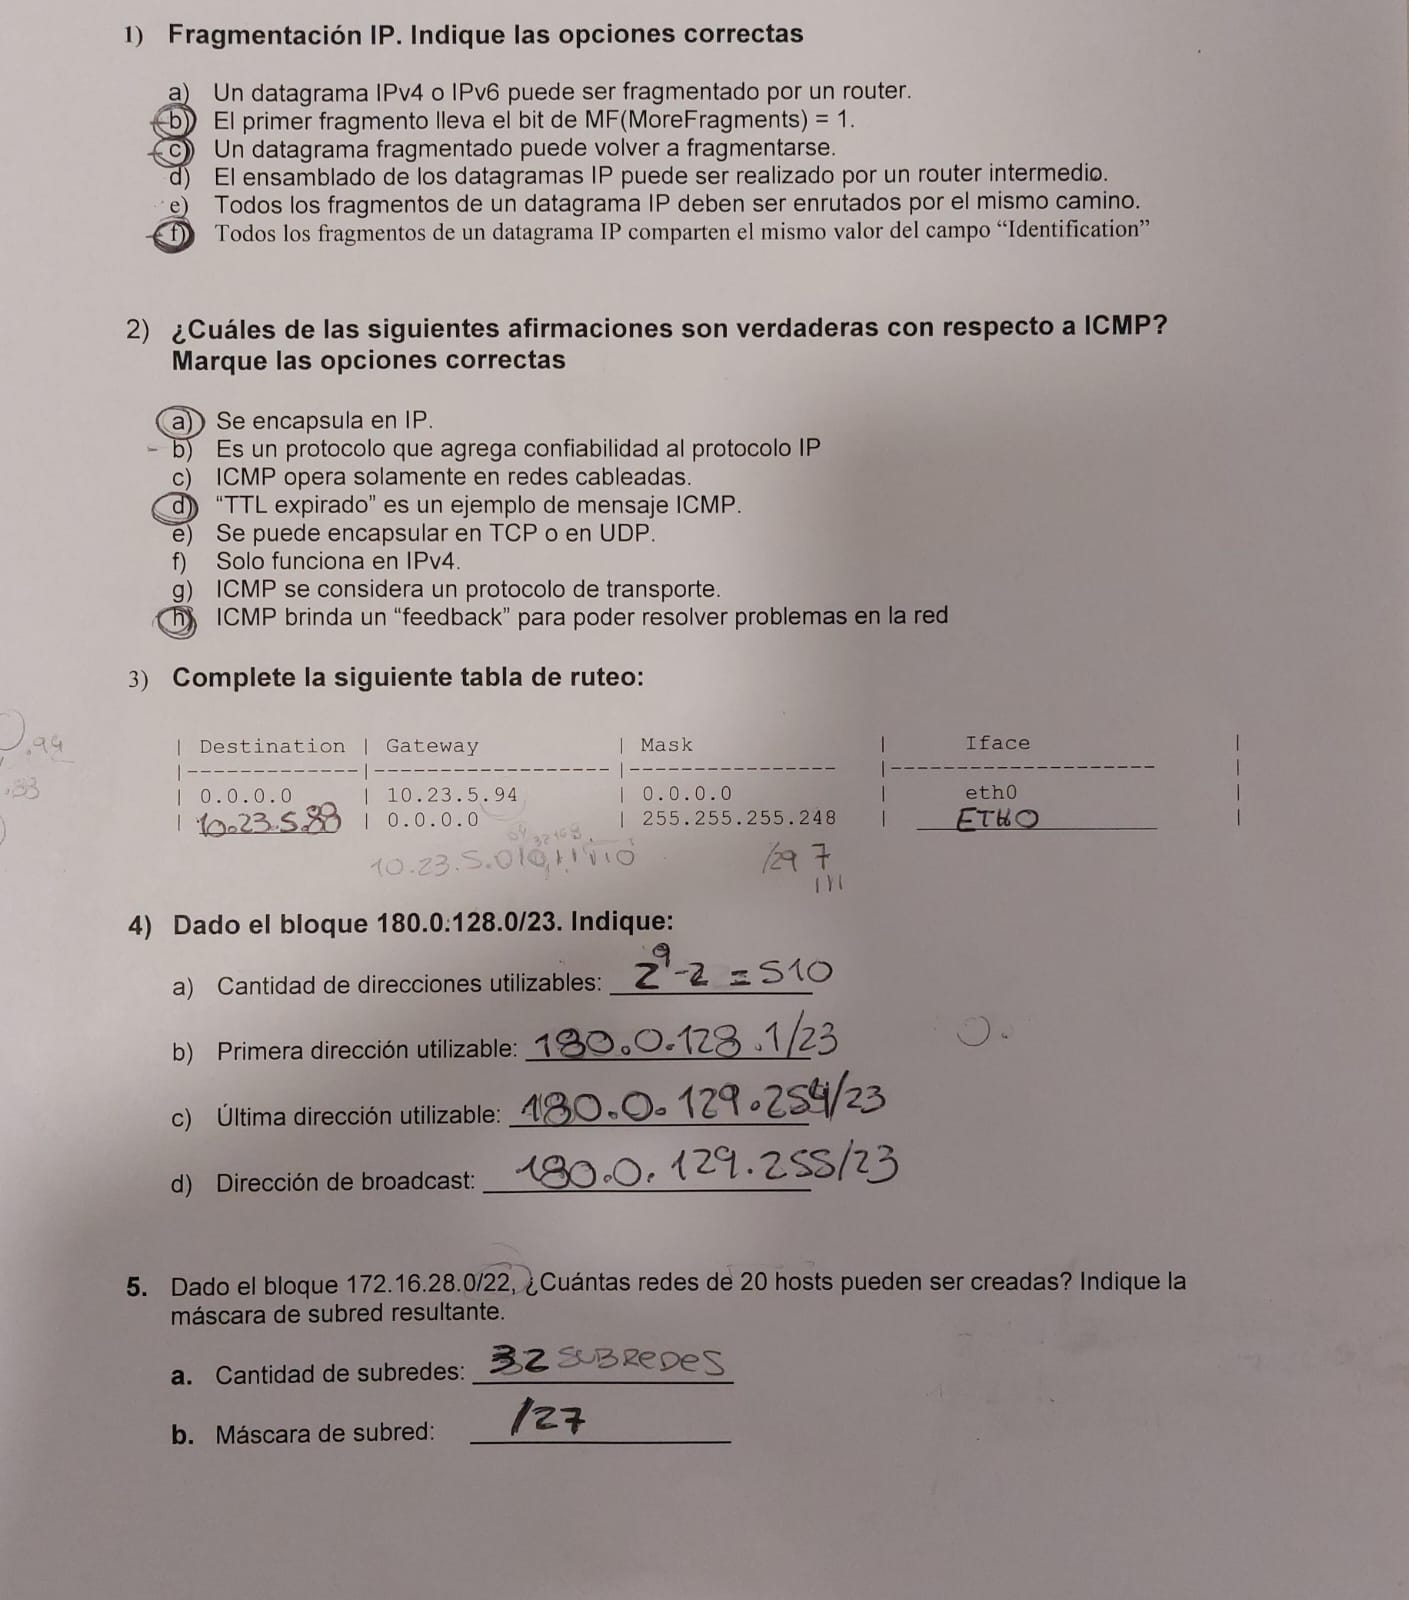 1) Fragmentación IP. Indique las opciones correctas
a) Un datagrama IPv4 o IPv6 puede ser fragmentado por un router.
b) El primer fragmento lleva el bit de MF(MoreFragments) = 1.
c) Un datagrama fragmentado puede volver a fragmentarse.
d) El ensamblado de los datagramas IP puede ser realizado por un router intermedio.
e) Todos los fragmentos de un datagrama IP deben ser enrutados por el mismo camino.
f) Todos los fragmentos de un datagrama IP comparten el mismo valor del campo “Identification”
2) ¿Cuáles de las siguientes afirmaciones son verdaderas con respecto a ICMP?
Marque las opciones correctas
a) Se encapsula en IP.
b) Es un protocolo que agrega confiabilidad al protocolo IP
c) ICMP opera solamente en redes cableadas.
d) “TTL expirado” es un ejemplo de mensaje ICMP.
e) Se puede encapsular en TCP o en UDP.
f) Solo funciona en IPv4.
g) ICMP se considera un protocolo de transporte.
h) ICMP brinda un “feedback” para poder resolver problemas en la red
3) Complete la siguiente tabla de ruteo:
.94
| Destination | Gateway | Mask | Iface |
.33
| 0.0.0.0 | 10.23.5.94 | 0.0.0.0 | eth0 |
| 10.23.5.88 | 0.0.0.0 | 255.255.255.248 | ETH0 |
/29 7
111
4) Dado el bloque 180.0.128.0/23. Indique:
a) Cantidad de direcciones utilizables: 2^9-2 = 510
b) Primera dirección utilizable: 180.0.128.1/23
c) Última dirección utilizable: 180.0.129.254/23
d) Dirección de broadcast: 180.0.129.255/23
5. Dado el bloque 172.16.28.0/22, ¿Cuántas redes de 20 hosts pueden ser creadas? Indique la
máscara de subred resultante.
a. Cantidad de subredes: 32 SUBREDES
b. Máscara de subred: /27